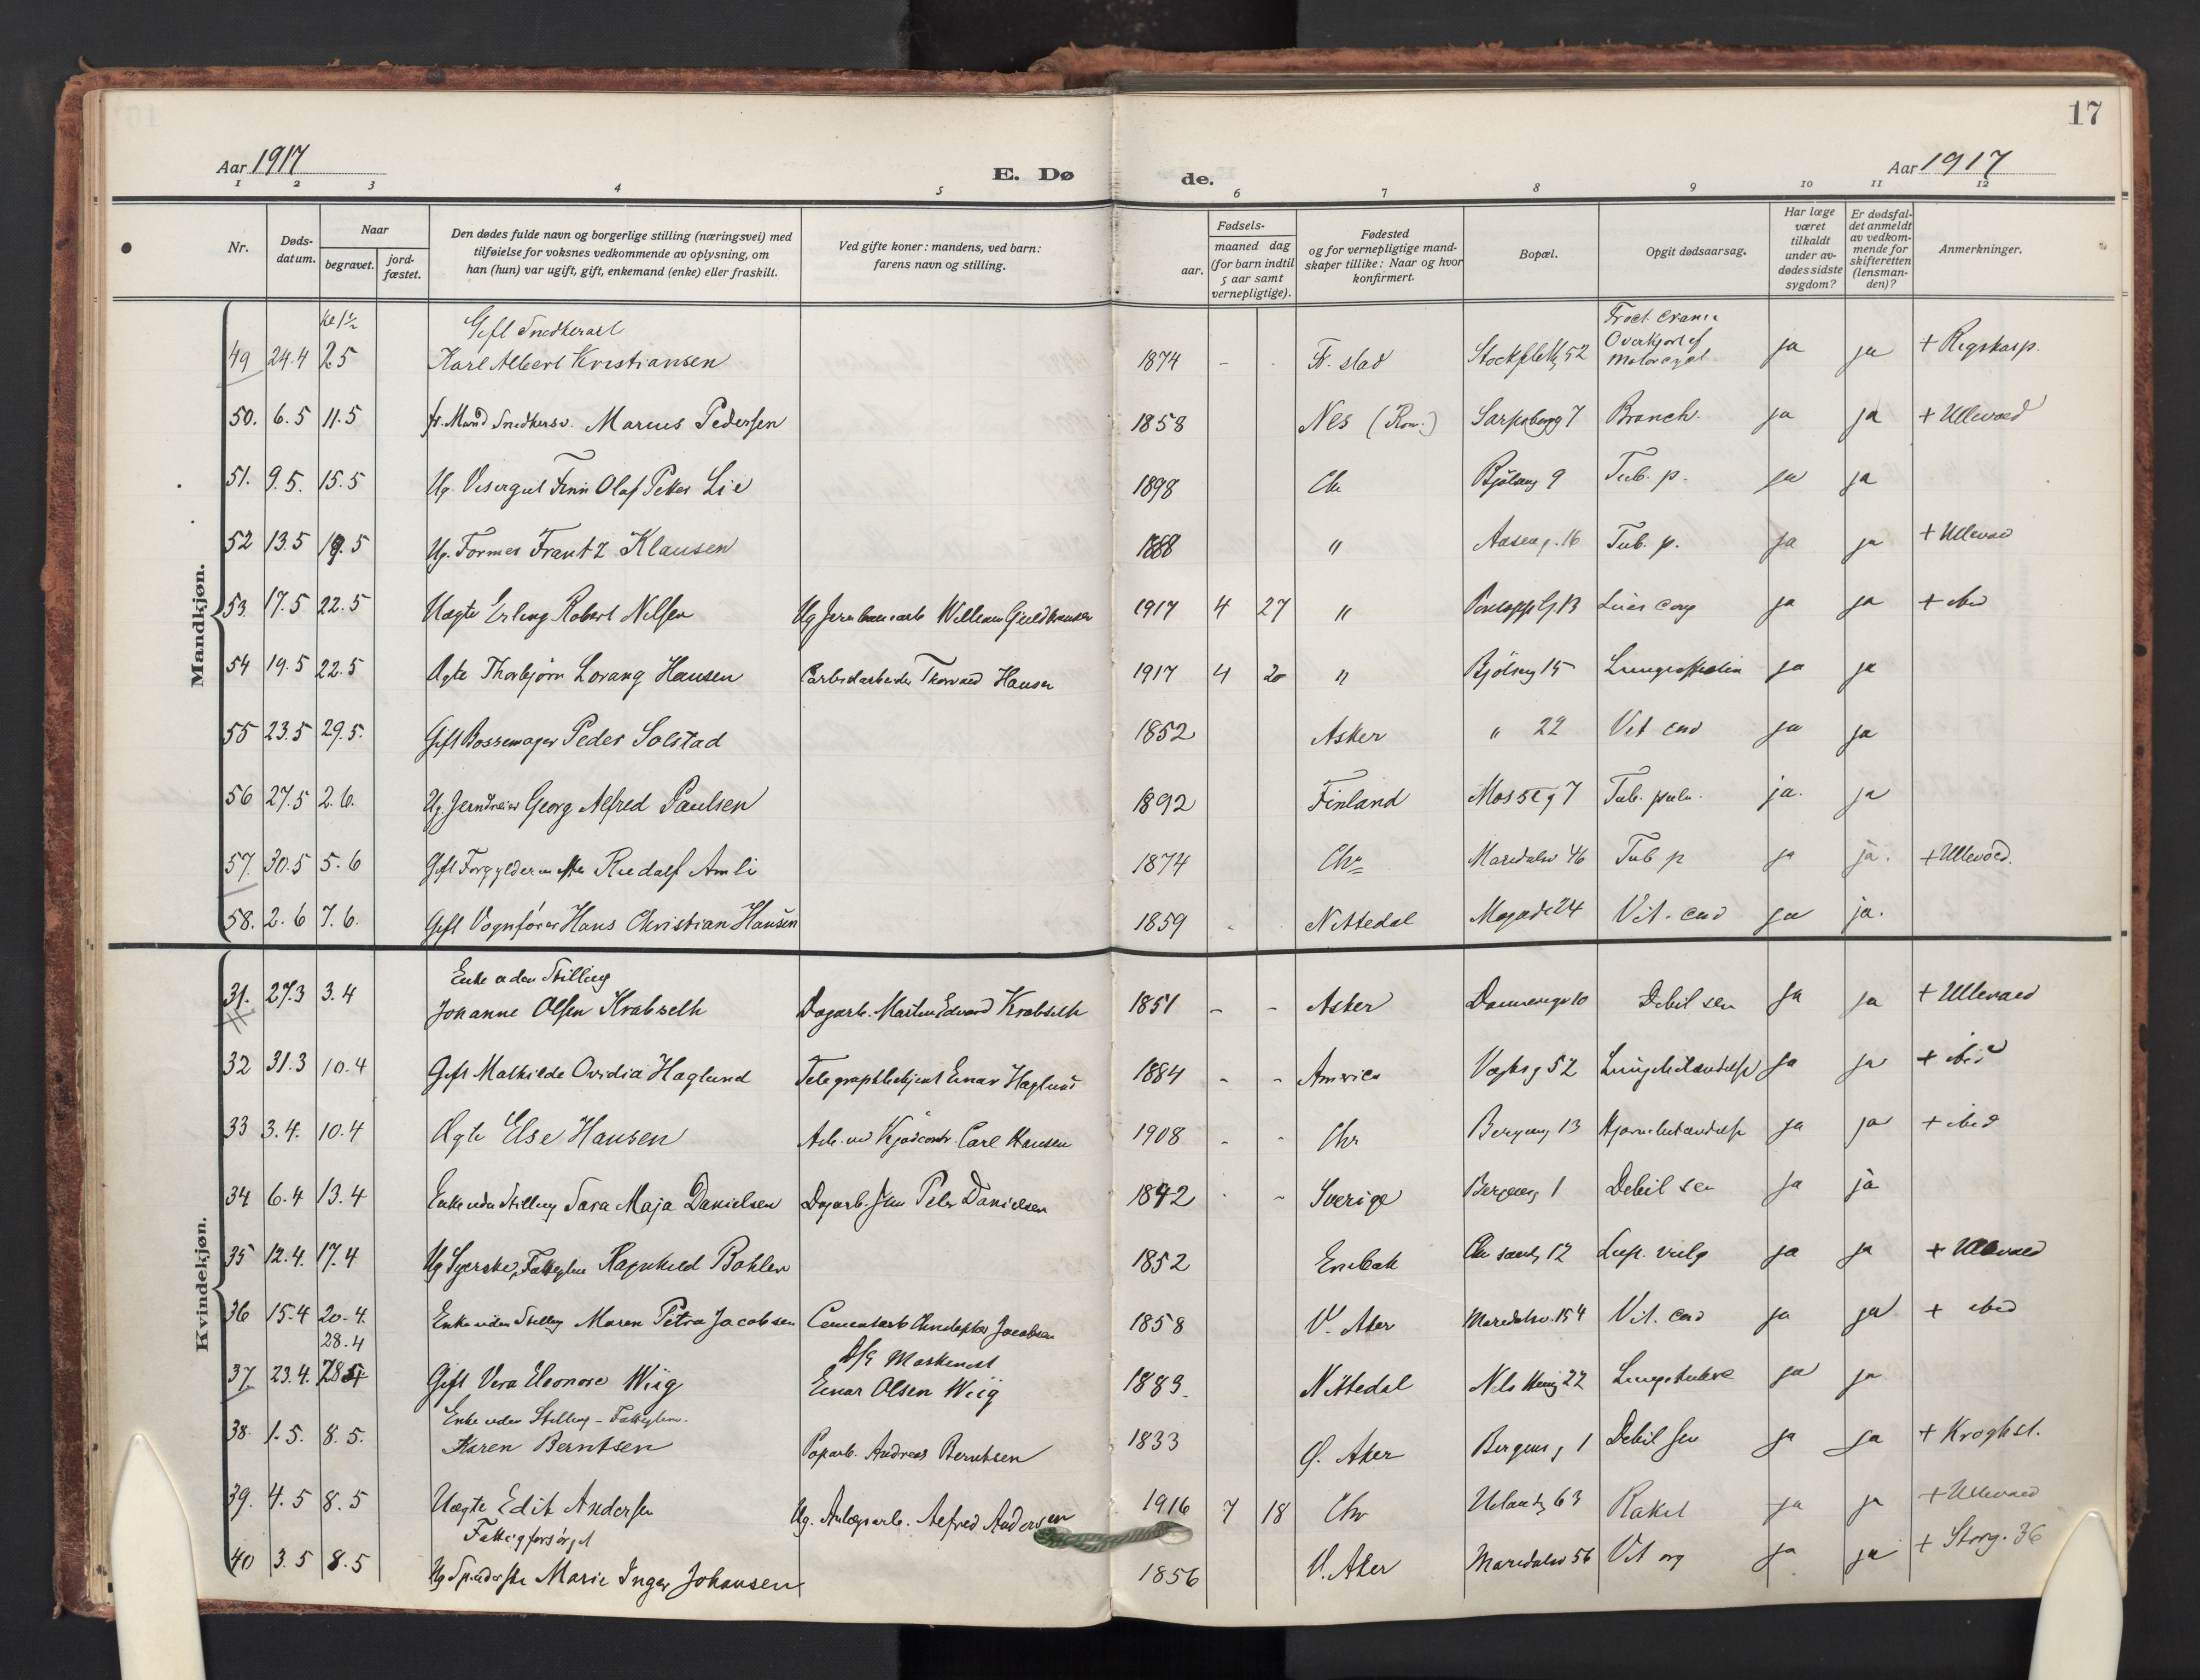 17
Aar 1917
E. Dø
de.
Aar 1917
1 2 3 4 5 6 7 8 9 10 11 12
Nr.
Døds-
datum.
Naar
begravet.
jord-
fæstet.
Den dødes fulde navn og borgerlige stilling (næringsvei) med
tilføielse for voksnes vedkommende av oplysning, om
han (hun) var ugift, gift, enkemand (enke) eller fraskilt.
Ved gifte koner: mandens, ved barn:
farens navn og stilling.
Fødsels-
aar.
maaned dag
(for barn indtil
5 aar samt
vernepligtige).
Fødested
og for vernepligtige mand-
skaper tillike: Naar og hvor
konfirmert.
Bopæl.
Opgit dødsaarsag.
Har læge
været
tilkaldt
under av-
dødes sidste
sygdom?
Er dødsfal-
det anmeldt
av vedkom-
mende for
skifteretten
(lensman-
den)?
Anmerkninger.
Mandkjøn.
Gift Snedkerarb
49 24.4 2.5 Karl Albert Kristiansen 1874 - Fr. stad 52 ja ja + Rigshosp.
50. 6.5 11.5 Marius Pedersen 1858 Nes (Rom.) Sarpsborgg 7 Bronch. ja ja + Ullevaal
51. 9.5. 15.5 Ug. Visergut Finn Olaf Petter Lie 1898 Chr 9 Tub. p. ja ja
52 13.5 19.5 Ug. Former Frantz Klausen 1888 " Aaseng. 16 Tub. p. ja ja + Ullevaal
53. 17.5 22.5 Uægte Erling Robert Nilsen 1917 4 27 " 13 Lues cong ja ja + ibid
54 19.5 22.5 Ægte Thorbjørn Lorang Hansen Carbidarbeider Thorvald Hansen 1917 4 20 " Bjölseng 15 ja ja
55 23.5 29.5. Gift Peder Solstad 1852 Asker " 22 Vit. cord ja ja
56 27.5 2.6. Ug. Jerndreier Georg Alfred Paulsen 1892 Finland Mosseg 7 Tub. pulm. ja. ja
57. 30.5 5.6 Gift Forgyldermester Rudolf Amli 1874 Chr Maridalsv 46 Tub p ja ja. + Ullevaal.
58. 2.6 7.6. Gift Vognfører Hans Christian Hansen 1859 Nittedal 24 Vit. cord ja ja.
Kvindekjøn.
Enke uden Stilling
31. 27.3 3.4 Johanne Olsen Krabseth Dagarb. Martin Edvard Krabseth 1851 - - Asker Dannevigsv 10 Debil sen ja ja + Ullevaal
32 31.3 10.4 Gift Mathilde Ovidia Haglund Telegraphbetjent Einar Haglund 1884 - - America Vogtsg 52 Lungebetændelse ja ja + ibid
33 3.4. 10.4 Ægte Else Hansen Carl Hansen 1908 - - Chr 13 Hjernebetændelse ja ja + ibid
34 6.4 13.4 Enke uden Stilling Sara Maja Danielsen Dagarb. Peter Danielsen 1842 - Sverige 1 Debil sen ja ja
35 12.4. 17.4 Ug Syerske, Ragnhild Bohlen 1852 Enebak 12 Lup. vulg ja ja + Ullevaal
36 15.4 20.4. Enke uden Stilling Maren Petra Jacobsen Cementarb Christopher Jacobsen 1858 V. Aker Maridalsv. 154 Vit. cord ja ja + ibid
28.4
37 23.4. Gift Vera Eleonore Wiig Maskinist
Einar Olsen Wiig 1883. Nittedal 22 ja ja
Enke uden Stilling -
38. 1.5. 8.5. Karen Berntsen Paparb. Andreas Berntsen 1833 Ø. Aker 1 Debil sen ja ja + Kroghst.
39. 4.5 8.5 Uægte Edit Andersen Ug. Anlægsarb. Alfred Andersen 1916 7 18 Chr Uelandsg 63 Rakit ja ja + Ullevaal
Fattigforsørget
40 3.5 8.5 Ug Marie Inger Johansen 1856 V. Aker Maridalsv 56 Vit org ja ja + Storg. 36